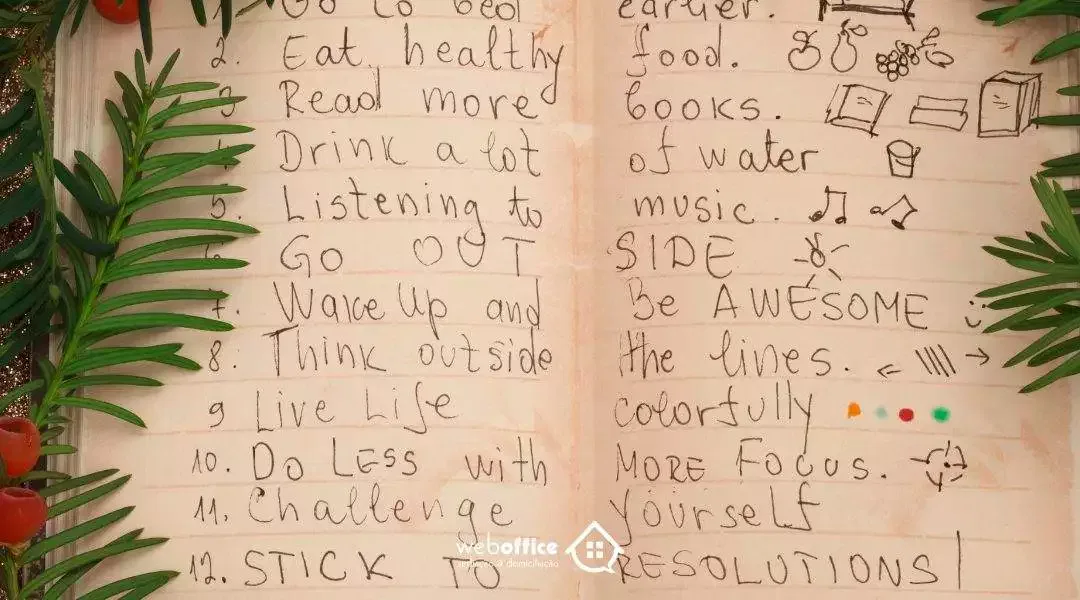 Go to bed earlier.
2. Eat healthy food.
3 Read more books.
Drink a lot of water
5. Listening to music.
6 Go OUT SIDE
7. Wake Up and Be AWESOME
8. Think outside the lines.
9 Live Life colorfully
10. Do LESS with MORE FOCUS.
11. Challenge yourself
12. STICK TO RESOLUTIONS
weboffice